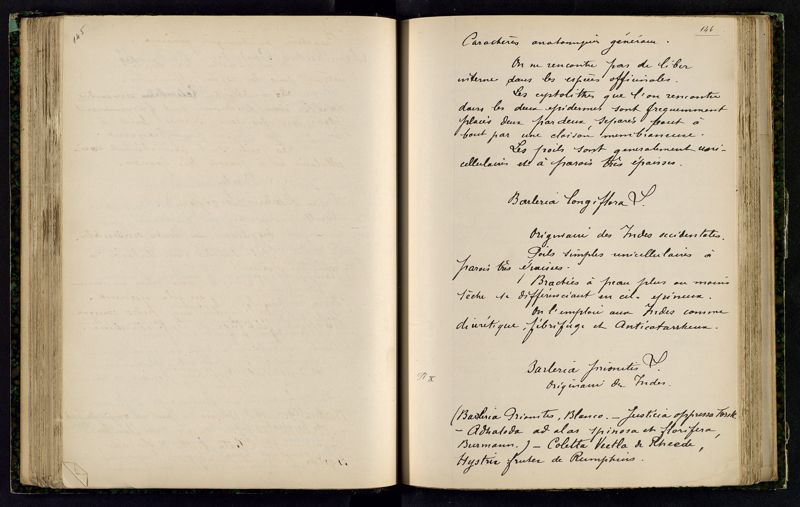 145
146
Caractères anatomiques généraux.
On ne rencontre pas de liber
interne dans les espèces officinales.
Les cystolithes que l'on rencontre
dans les deux epidermes sont frequemment
placés deux par deux séparés bout à
bout par une cloison membraneuse.
Les poils sont generalement uni-
cellulaires et à parois très épaisses.
Barleria longiflora L.
Originaire des Indes occidentales.
Poils simples unicellulaires à
parois très épaisses.
Bractées à peau plus ou moins
sèche se différenciant en epineux.
On l'emploie aux Indes comme
diurétique, fébrifuge et Anticatarrheux.
Pl X
Barleria prionitis L.
Originaire des Indes.
(Barleria Prionites, Blanco. — Justicia oppressa Forsk
— Adhatoda ad alas spinosa et florifera,
Burmann.) — Coletta Veetla de Rheede,
Hystrix frutex de Rumphius.